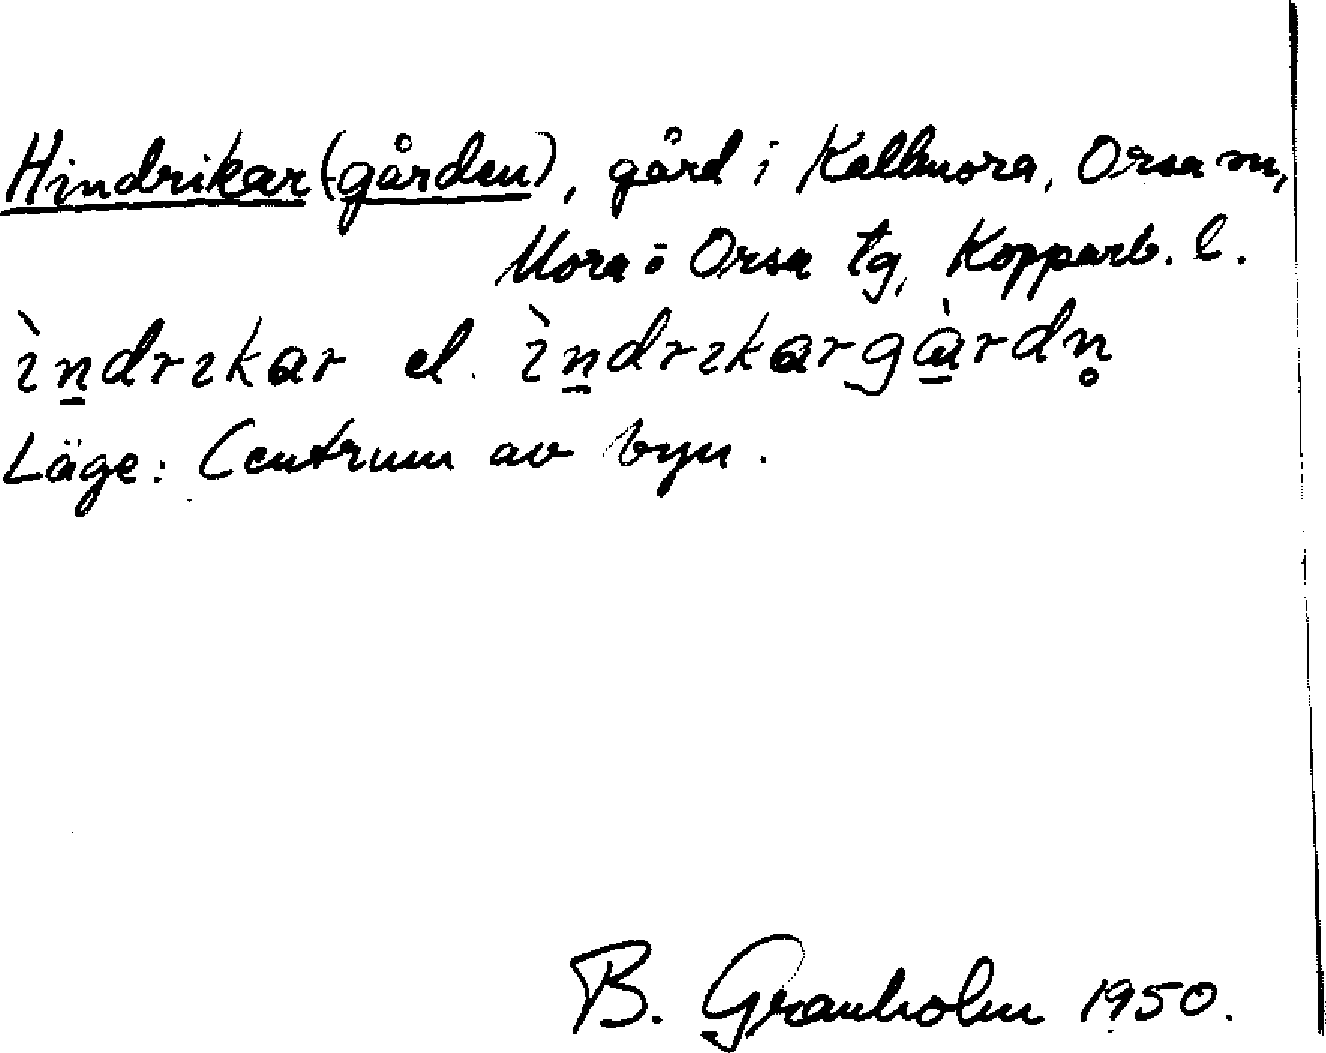 Hindrikar(gården), gård i Kallmora, Orsa sn,
Mora o Orsa tg, Kopparb. l.
ìn̠drıkar el. ìn̠drıkargà̠rdn̥
Läge: Centrum av byn.
B. Granholm 1950.